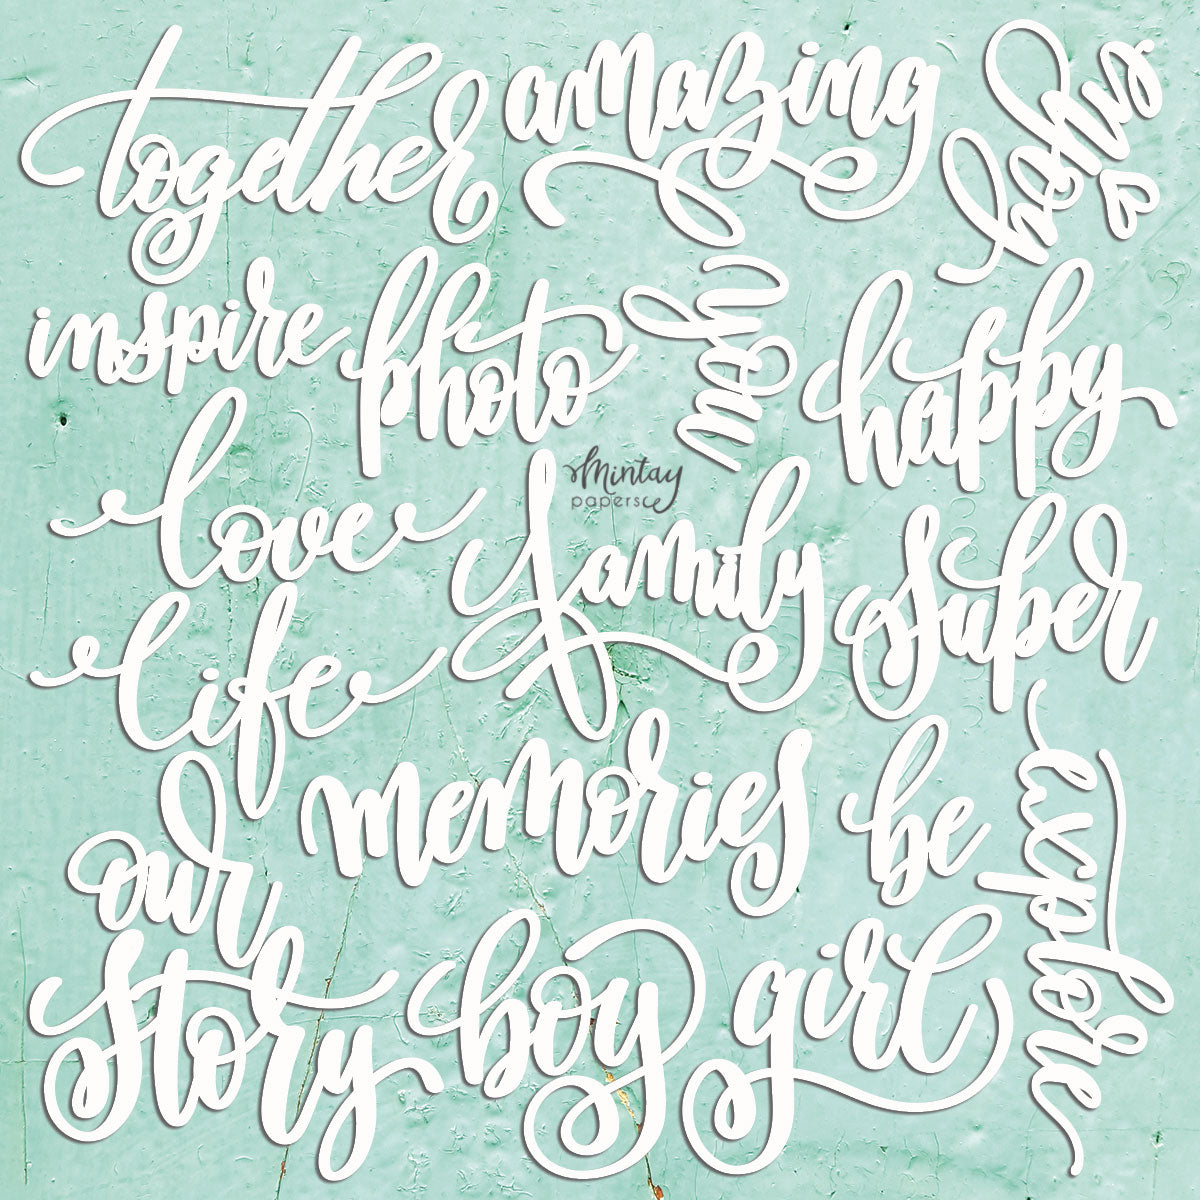 together
amazing
inspire
photo
you
happy
love
family
super
life
memories
be
explore
our
story
boy
girl
Mintay
papers